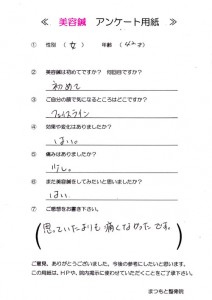 ≪ 美容鍼 アンケート用紙 ≫
① 性別 ( 女 ) 年齢 ( 42才)
② 美容鍼は初めてですか? 何回目ですか?
初めて
③ ご自分の顔で気になるところはどこですか?
フェイスライン
④ 効果や変化はありましたか?
はい。
⑤ 痛みはありましたか?
少し。
⑥ また美容鍼をしてみたいと思いましたか?
はい
⑦ ご意見をお書き下さい。
(思っていたよりも痛くなかったです。)
ご意見、ありがとうございました。今後の参考にしたいと思います。
この用紙は、HPや、院内掲示に使わせていただくことをご了承下さい。
まつもと整骨院